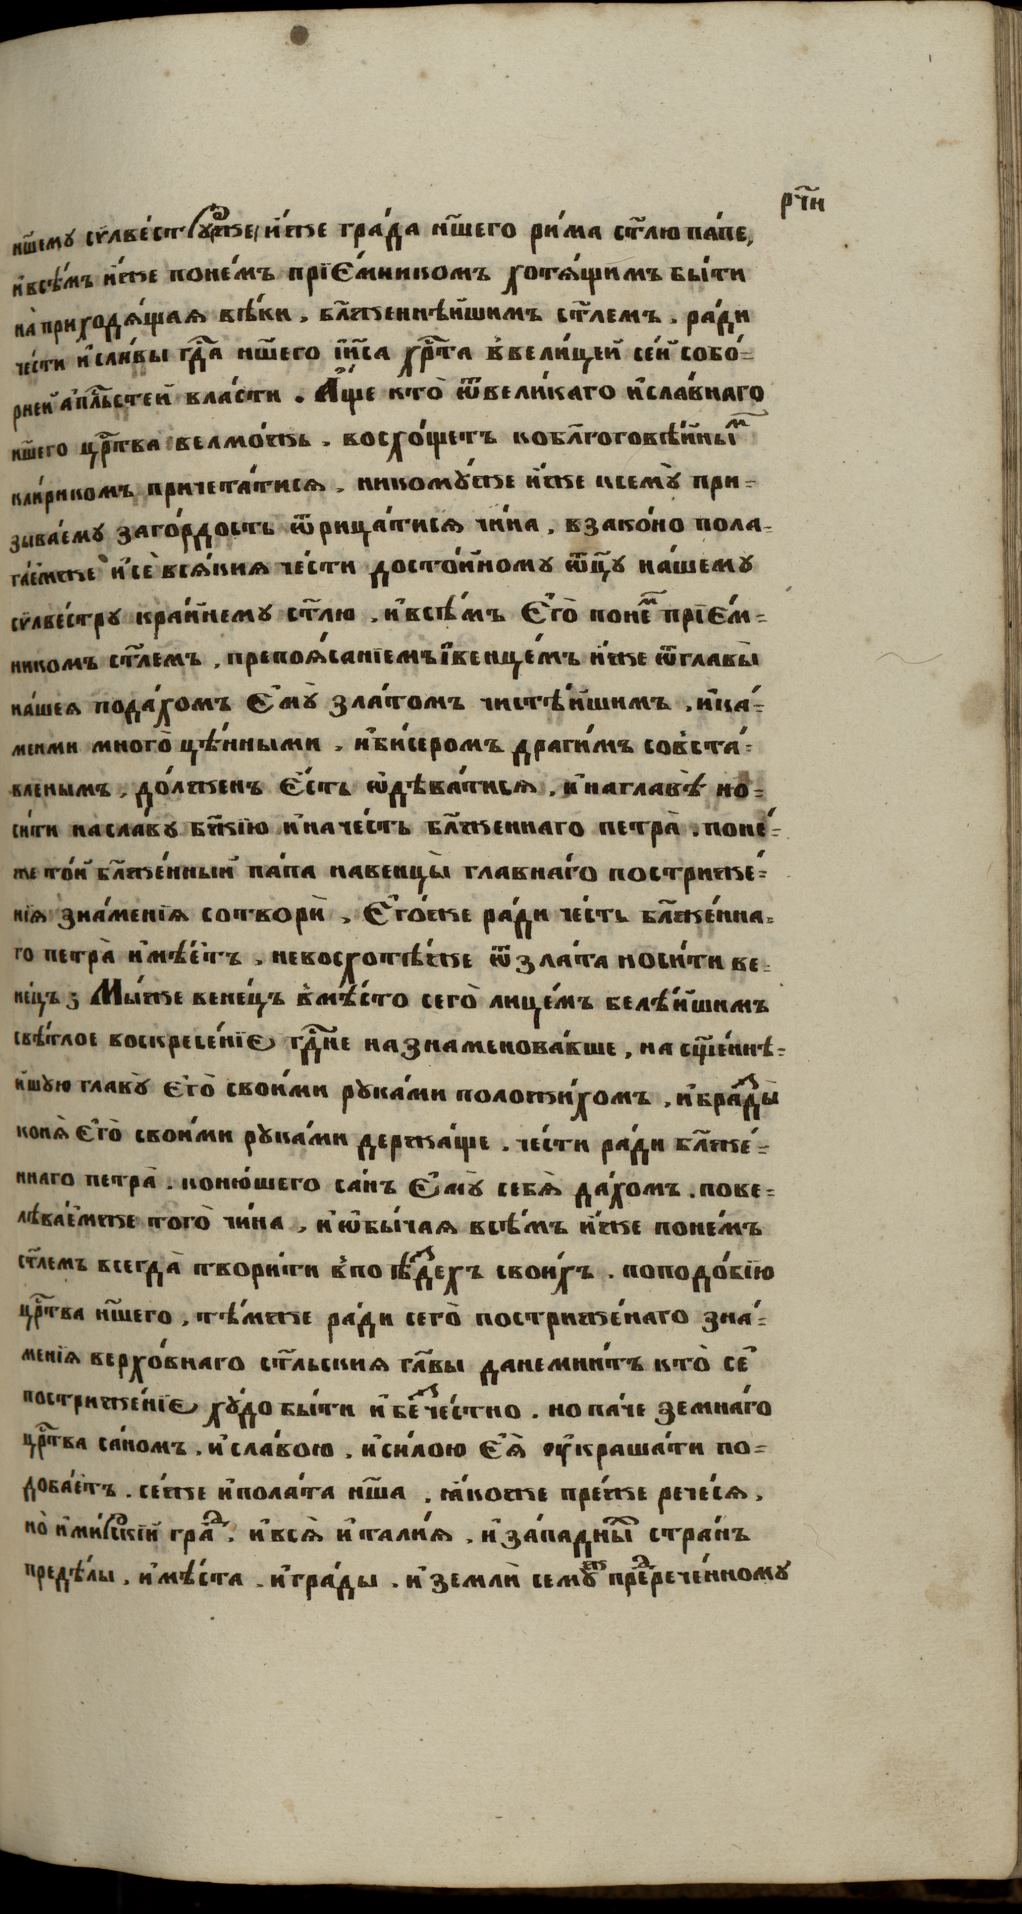 рч҃и
нш҃ему сѵлве́струже, и́же гра́да нш҃его ри́ма ст҃лю па́пе,
и҆всѣ́мъ и́же поне́мъ прїе́мникомъ хотѧ́щимъ бы́ти
на̀ приходѧ́щаѧ вѣ́ки, бл҃женнѣ́йшимъ ст҃лемъ, ра́ди
че́сти и҆сла́вы гд҃а нш҃его і҆и҃са хр҃та в҆вели́цей се́й собо́-
рней а҆пл҃ьстей вла́сти. А҆́ще кто̀ ѿвели́каго и҆сла́внаго
нш҃его цр҃тва велмо́жь, восхо́щетъ кобл҃гоговѣ́йны́м
кли́рикомъ причета́тисѧ, никому́же и́же ксему̀ при-
зыва́ему заго́рдость ѿрица́тисѧ чи́на, взако́но пола-
га́емже и҆сѐ всѧ́киѧ че́сти досто́йному ѿц҃у на́шему
сѵлве́стру кра́йнему ст҃лю, и҆всѣ́мъ Е҆го̀ поне́м прїе́м-
никомъ ст҃лемъ, препоѧ́санїемъ і҆венце́мъ и́же ѿглавы̀
на́шеѧ пода́хомъ Е҆му̀ зла́томъ чистѣ́йшимъ, и҆ка́-
меими много̀ цѣ́нными, и҆би́серомъ драги́мъ сов҆ста́-
вленымъ, до́лженъ Е҆́сть ѡ҆дѣва́тисѧ, и҆ наглавѣ̀ но-
си́ти насла́ву бж҃їю и҆наче́сть бл҃женнаго петра̀, поне́-
же то́й бл҃же́нный па́па навенцы̀ главна́го постриже́-
нїѧ зна́менїѧ сотворѝ, Е҆го́же ра́ди че́сть бл҃же́нна-
го петра̀ и҆мѣ́етъ, невосхотѣ́же ѿзла́та носи́ти ве-
не́цъ; Мы́же вене́цъ в҆мѣ́сто сего̀ лице́мъ белѣ́йшимъ
свѣ́тлое воскресе́нїе гд҃не назнаменова́вше, на сщ҃еннѣ-
йшую главу̀ е҆го̀ свои́ми рука́ми положи́хомъ, и҆бразды̀
конѧ̀ е҆го̀ свои́ми рука́ми держа́ще, че́сти ра́ди бл҃же́-
ннаго петра̀. коню́шего са́нъ Е҆му̀ себѧ̀ да́хомъ, пове-
лѣва́емже того̀ чи́на, и҆ѡ҆бы́чаѧ всѣ́мъ и́же поне́мъ
ст҃лемъ всегда̀ твори́ти в҆поѣ́здехъ свои́хъ. поподо́бїю
цр҃тва нш҃его, тѣ́мже ра́ди сего̀ постриже́наго зна́-
менїѧ верхо́внаго ст҃льскиѧ гл҃вы данемни́тъ кто̀ се̏
постриже́нїе ху́до бы́ти и҆ безче́стно. но па́че земна́го
цр҃тва са́номъ, и҆сла́вою, и҆си́лою Е҆ѧ̀ ѹ҆краша́ти по-
доба́етъ. се́же и҆пола́та нш҃а, ꙗ҆́коже пре́же рече́сѧ,
но̀ и҆ми́рскїй гра́д, и҆всѧ̀ и҆тали́ѧ, и҆ за́падныѧ стра́нъ
предѣ́лы, и҆мѣ́ста, и҆гра́ды, и҆ землѝ сему́ж пре́дрече́нному